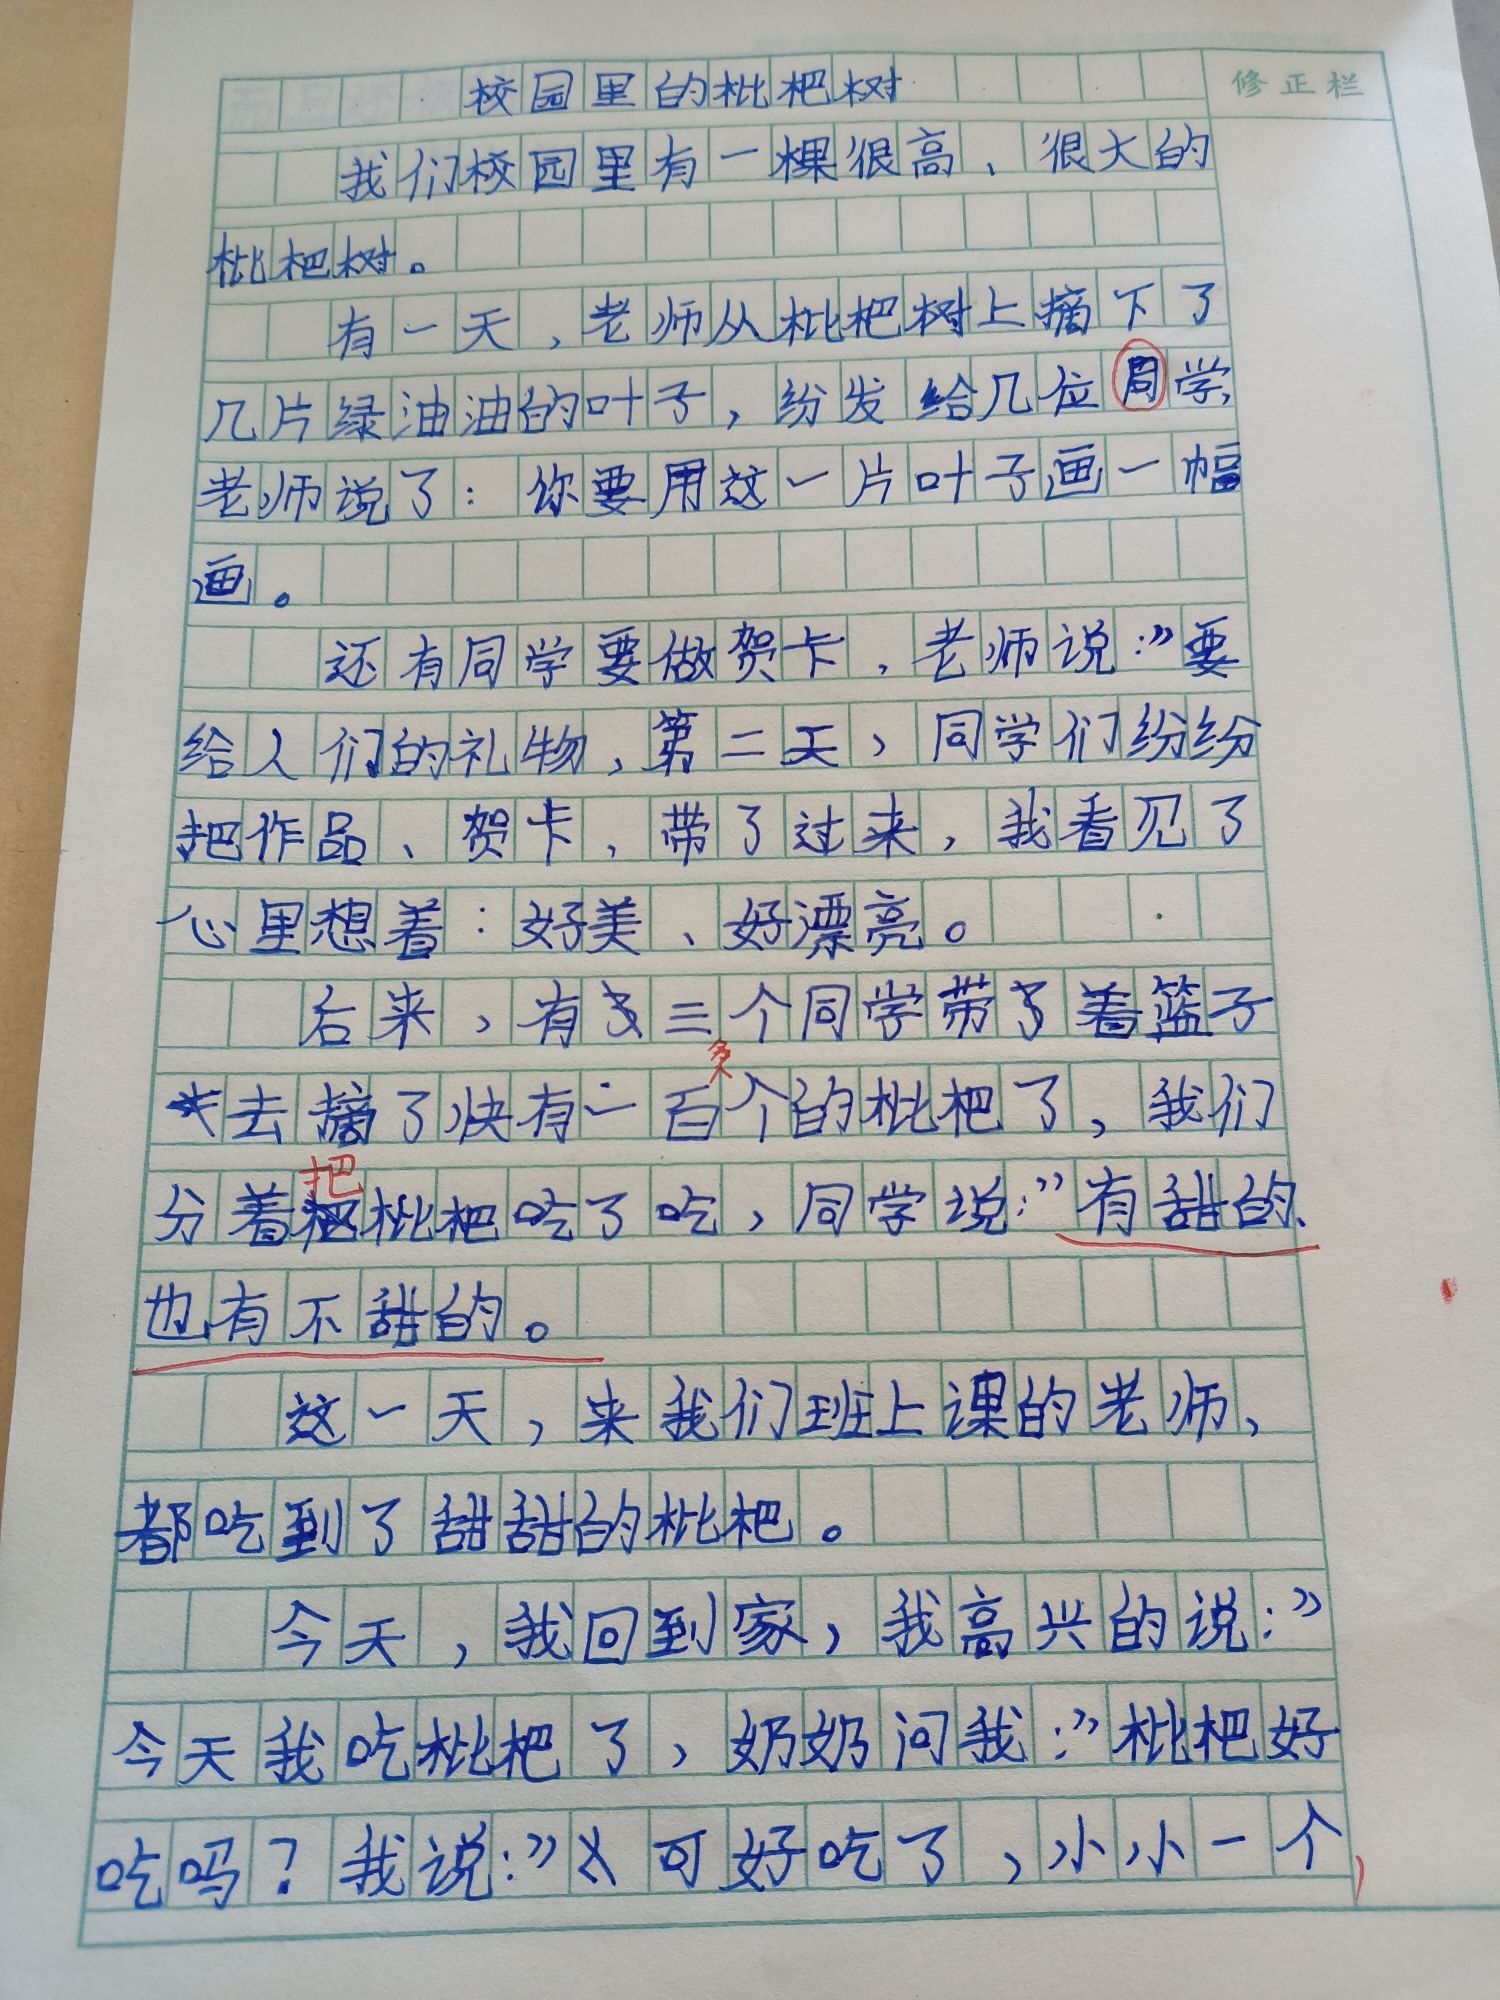 校园里的枇杷树
修正栏
我们校园里有一棵很高、很大的
枇杷树。
有一天，老师从枇杷树上摘下了
几片绿油油的叶子，纷发给几位同学，
老师说了：你要用这一片叶子画一幅
画。
还有同学要做贺卡，老师说：”要
给人们的礼物，第二天，同学们纷纷
把作品、贺卡，带了过来，我看见了
心里想着：好美、好漂亮。
后来，有三个同学带着篮子
去摘了快有一百多个的枇杷了，我们
分着把枇杷吃了吃，同学说：”有甜的、
也有不甜的。
这一天，来我们班上课的老师，
都吃到了甜甜的枇杷。
今天，我回到家，我高兴的说：”
今天我吃枇杷了，奶奶问我：”枇杷好
吃吗？我说：”可好吃了，小小一个，